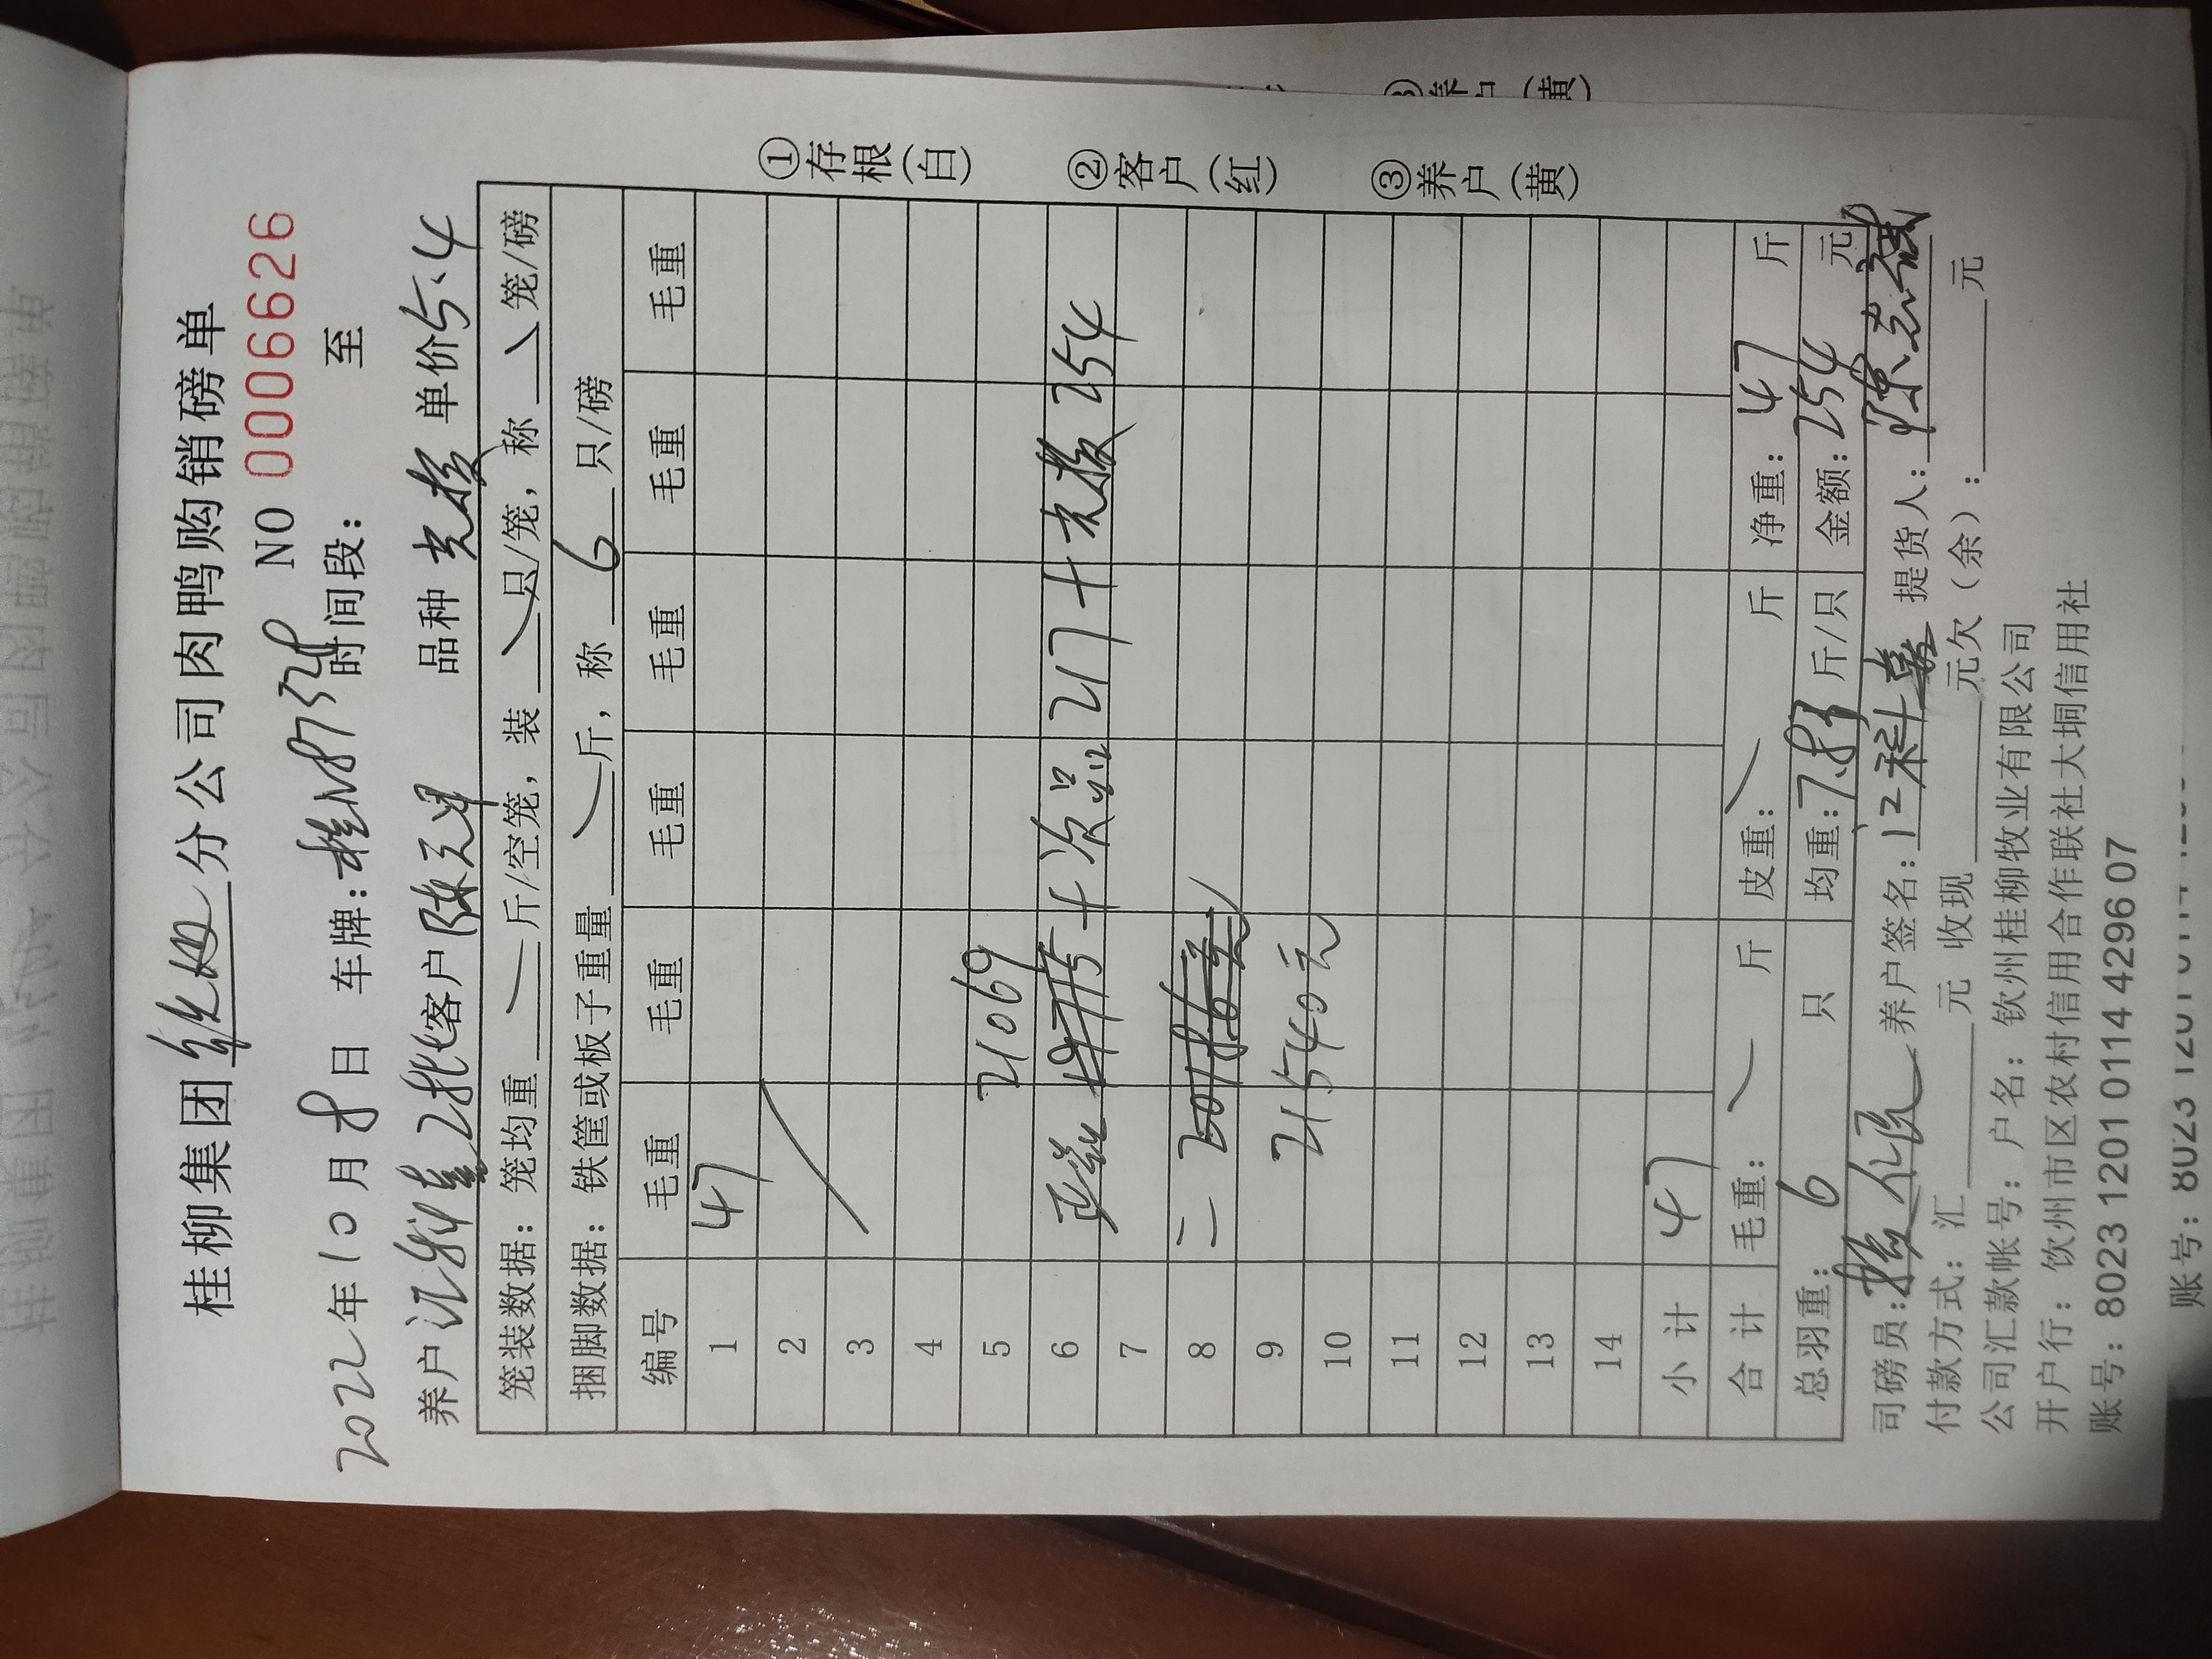 桂柳集团分公司肉鸭购销磅单
NO 0006626
2022年10月8日 车牌:桂N8732 时间段: 至
养户 江科嘉2批 客户 陈 品种 单价5.4
笼装数据: 笼均重 斤/空笼, 装 只/笼, 称 笼/磅
捆脚数据: 铁筐或板子重量 斤, 称 6 只/磅
编号 毛重 毛重 毛重 毛重 毛重 毛重
1 47
2
3
4
5 21069
6 + 次品 217 + 254
7
8 =
9 21540元
10
11
12
13
14
小计 47
合计 毛重: 斤 皮重: 斤 净重: 47 斤
总羽重: 6 只 均重: 7.83 斤/只 金额: 254 元
司磅员: 养户签名: 江科嘉 提货人: 陈志斌
付款方式: 汇 元 收现 元欠(余): 元
公司汇款帐号: 户名: 钦州桂柳牧业有限公司
开户行: 饮州市区农村信用合作联社大垌信用社
账号: 8023 1201 0114 4296 07
①存根(白)
②客户(红)
③养户(黄)
③养户(黄)
账号: 8023 1201 0114